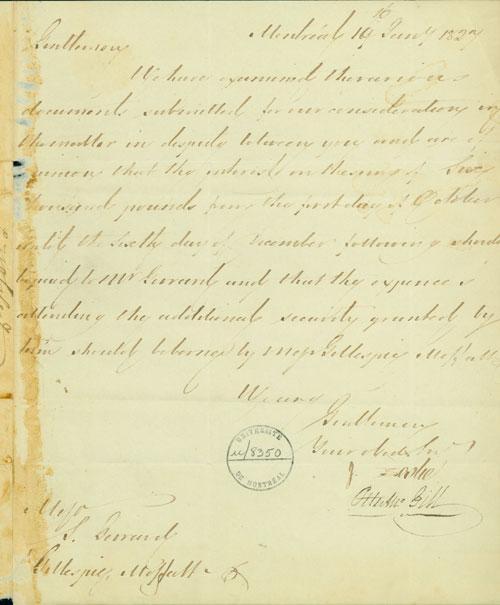 Montréal 16 Jany 1827
Gentlemen
We have examined the various
documents submitted for our consideration in
the matter in dispute between you and are of
opinion that the interest on the sum of
thousand pounds from the first day of October
until the sixth day of December following should
be paid to Mr Gerrard and that the expences
attending the additional security granted by
him should be borne by Messrs Gillespie Moffatt
We are
Gentlemen
Your obedt
UNIVERSITÉ
u/8350
DE MONTRÉAL
Messrs
S. Gerrard
Gillespie, Moffatt &